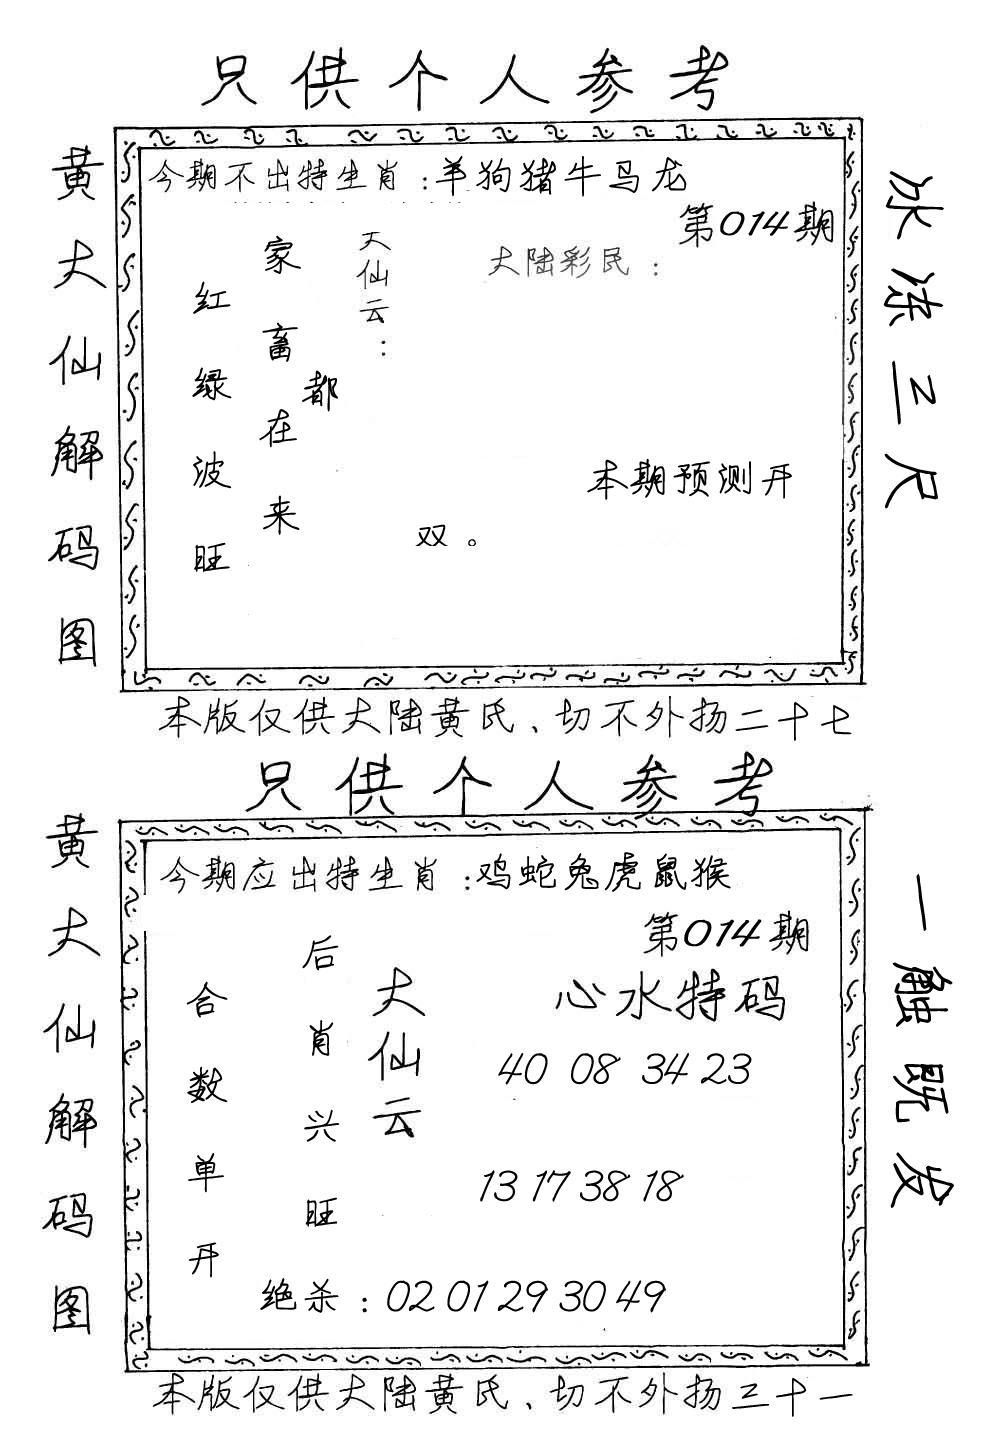 只供个人参考
黄大仙解码图
今期不出特生肖:羊狗猪牛马龙
第014期
大陆彩民:
天仙云:
家畜在来
都
红绿波旺
本期预测开
双。
冰冻三尺
本版仅供大陆黄氏、切不外扬二十七
只供个人参考
黄大仙解码图
今期应出特生肖:鸡蛇兔虎鼠猴
第014期
心水特码
大仙云
后肖兴旺
合数单开
40 08 34 23
13 17 38 18
绝杀:02 01 29 30 49
一触既发
本版仅供大陆黄氏、切不外扬三十一